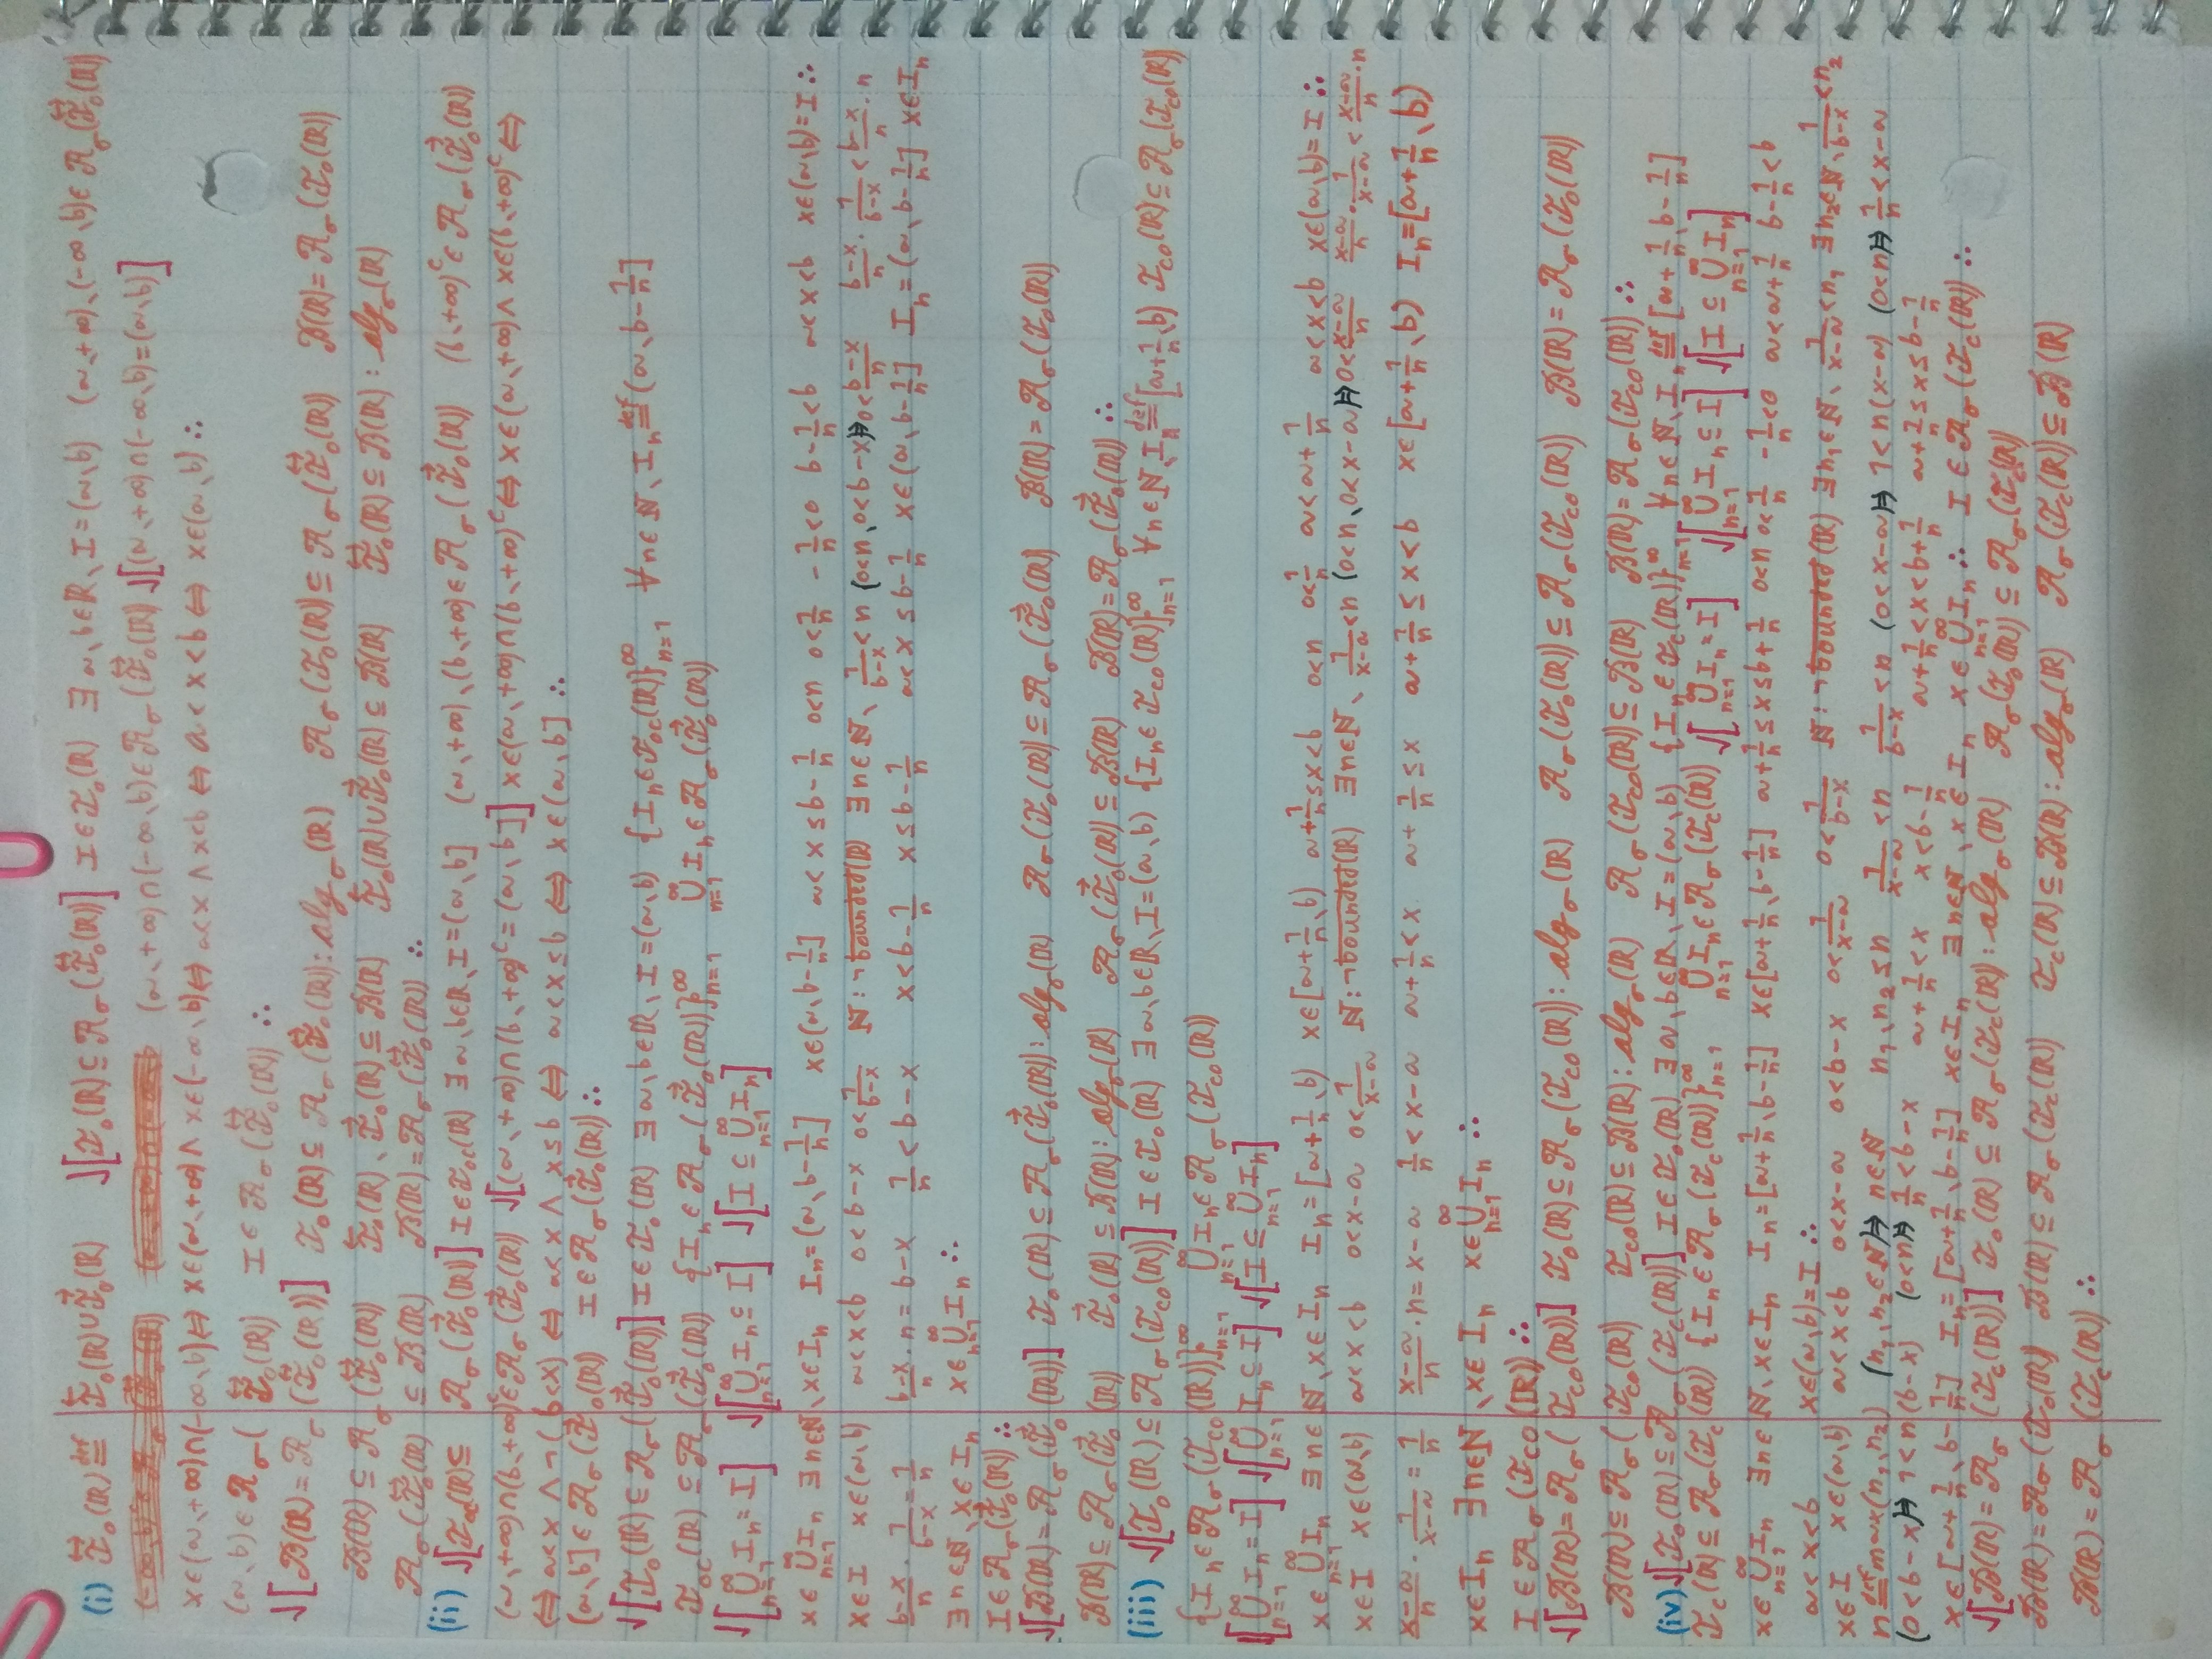 (i) 𝓘⃡ₒ(ℝ) ≝ 𝓘⃖ₒ(ℝ)∪𝓘⃗ₒ(ℝ) √[𝓘ₒ(ℝ)⊆𝓐_σ(𝓘⃡ₒ(ℝ))] I∈𝓘ₒ(ℝ) ∃a,b∈ℝ, I=(a,b) (a,+∞),(-∞,b)∈𝓐_σ(𝓘⃡ₒ(ℝ))
(a,+∞)∩(-∞,b)∈𝓐_σ(𝓘⃡ₒ(ℝ)) √[(a,+∞)∩(-∞,b)=(a,b)]
x∈(a,+∞)∩(-∞,b)⇔x∈(a,+∞)∧x∈(-∞,b)⇔a<x∧x<b⇔a<x<b⇔x∈(a,b)∴
(a,b)∈𝓐_σ(𝓘⃡ₒ(ℝ)) I∈𝓐_σ(𝓘⃡ₒ(ℝ)) ∴
√[𝓑(ℝ)=𝓐_σ(𝓘⃡ₒ(ℝ))] 𝓘ₒ(ℝ)⊆𝓐_σ(𝓘⃡ₒ(ℝ)):alg_σ(ℝ) 𝓐_σ(𝓘ₒ(ℝ))⊆𝓐_σ(𝓘⃡ₒ(ℝ)) 𝓑(ℝ)=𝓐_σ(𝓘ₒ(ℝ))
𝓑(ℝ)⊆𝓐_σ(𝓘⃡ₒ(ℝ)) 𝓘⃖ₒ(ℝ),𝓘⃗ₒ(ℝ)⊆𝓑(ℝ) 𝓘⃖ₒ(ℝ)∪𝓘⃗ₒ(ℝ)⊆𝓑(ℝ) 𝓘⃡ₒ(ℝ)⊆𝓑(ℝ):alg_σ(ℝ)
𝓐_σ(𝓘⃡ₒ(ℝ))⊆𝓑(ℝ) 𝓑(ℝ)=𝓐_σ(𝓘⃡ₒ(ℝ)) ∴
(ii) √[𝓘_oc(ℝ)⊆𝓐_σ(𝓘⃗ₒ(ℝ))] I∈𝓘_oc(ℝ) ∃a,b∈ℝ, I=(a,b] (a,+∞),(b,+∞)∈𝓐_σ(𝓘⃗ₒ(ℝ)) (b,+∞)ᶜ∈𝓐_σ(𝓘⃗ₒ(ℝ))
(a,+∞)∩(b,+∞)ᶜ∈𝓐_σ(𝓘⃗ₒ(ℝ)) √[(a,+∞)∩(b,+∞)ᶜ=(a,b]] x∈(a,+∞)∩(b,+∞)ᶜ⇔x∈(a,+∞)∧x∈(b,+∞)ᶜ⇔
⇔a<x∧¬(b<x)⇔a<x∧x≤b⇔a<x≤b⇔x∈(a,b] ∴
(a,b]∈𝓐_σ(𝓘⃗ₒ(ℝ)) I∈𝓐_σ(𝓘⃗ₒ(ℝ)) ∴
√[𝓘ₒ(ℝ)⊆𝓐_σ(𝓘⃗ₒ(ℝ))] I∈𝓘ₒ(ℝ) ∃a,b∈ℝ, I=(a,b) {Iₙ∈𝓘_oc(ℝ)}ₙ₌₁^∞ ∀n∈ℕ, Iₙ≝(a,b-1/n]
𝓘_oc(ℝ)⊆𝓐_σ(𝓘⃗ₒ(ℝ)) {Iₙ∈𝓐_σ(𝓘⃗ₒ(ℝ))}ₙ₌₁^∞ ⋃ₙ₌₁^∞ Iₙ∈𝓐_σ(𝓘⃗ₒ(ℝ))
√[⋃ₙ₌₁^∞ Iₙ=I] √[⋃ₙ₌₁^∞ Iₙ⊆I] √[I⊆⋃ₙ₌₁^∞ Iₙ]
x∈⋃ₙ₌₁^∞ Iₙ ∃n∈ℕ, x∈Iₙ Iₙ=(a,b-1/n] x∈(a,b-1/n] a<x≤b-1/n 0<n 0<1/n -1/n<0 b-1/n<b a<x<b x∈(a,b)=I∴
x∈I x∈(a,b) a<x<b 0<b-x 0<1/(b-x) ℕ:¬bounded(ℝ) ∃n∈ℕ, 1/(b-x)<n (0<n, 0<b-x)⇒0<(b-x)/n (b-x)/n·1/(b-x)<(b-x)/n·n
(b-x)/n·1/(b-x)=1/n (b-x)/n·n=b-x 1/n<b-x x<b-1/n x≤b-1/n a<x≤b-1/n x∈(a,b-1/n] Iₙ=(a,b-1/n] x∈Iₙ
∃n∈ℕ, x∈Iₙ x∈⋃ₙ₌₁^∞ Iₙ ∴
I∈𝓐_σ(𝓘⃗ₒ(ℝ)) ∴
√[𝓑(ℝ)=𝓐_σ(𝓘⃗ₒ(ℝ))] 𝓘ₒ(ℝ)⊆𝓐_σ(𝓘⃗ₒ(ℝ)):alg_σ(ℝ) 𝓐_σ(𝓘ₒ(ℝ))⊆𝓐_σ(𝓘⃗ₒ(ℝ)) 𝓑(ℝ)=𝓐_σ(𝓘ₒ(ℝ))
𝓑(ℝ)⊆𝓐_σ(𝓘⃗ₒ(ℝ)) 𝓘⃗ₒ(ℝ)⊆𝓑(ℝ):alg_σ(ℝ) 𝓐_σ(𝓘⃗ₒ(ℝ))⊆𝓑(ℝ) 𝓑(ℝ)=𝓐_σ(𝓘⃗ₒ(ℝ)) ∴
(iii) √[𝓘ₒ(ℝ)⊆𝓐_σ(𝓘_co(ℝ))] I∈𝓘ₒ(ℝ) ∃a,b∈ℝ, I=(a,b) {Iₙ∈𝓘_co(ℝ)}ₙ₌₁^∞ ∀n∈ℕ, Iₙ≝[a+1/n,b) 𝓘_co(ℝ)⊆𝓐_σ(𝓘_co(ℝ))
{Iₙ∈𝓐_σ(𝓘_co(ℝ))}ₙ₌₁^∞ ⋃ₙ₌₁^∞ Iₙ∈𝓐_σ(𝓘_co(ℝ))
√[⋃ₙ₌₁^∞ Iₙ=I] √[⋃ₙ₌₁^∞ Iₙ⊆I] √[I⊆⋃ₙ₌₁^∞ Iₙ]
x∈⋃ₙ₌₁^∞ Iₙ ∃n∈ℕ, x∈Iₙ Iₙ=[a+1/n,b) x∈[a+1/n,b) a+1/n≤x<b 0<n 0<1/n a<a+1/n a<x<b x∈(a,b)=I ∴
x∈I x∈(a,b) a<x<b 0<x-a 0<1/(x-a) ℕ:¬bounded(ℝ) ∃n∈ℕ, 1/(x-a)<n (0<n, 0<x-a)⇒0<(x-a)/n (x-a)/n·1/(x-a)<(x-a)/n·n
(x-a)/n·1/(x-a)=1/n (x-a)/n·n=x-a 1/n<x-a a+1/n<x a+1/n≤x a+1/n≤x<b x∈[a+1/n,b) Iₙ=[a+1/n,b)
x∈Iₙ ∃n∈ℕ, x∈Iₙ x∈⋃ₙ₌₁^∞ Iₙ ∴
I∈𝓐_σ(𝓘_co(ℝ)) ∴
√[𝓑(ℝ)=𝓐_σ(𝓘_co(ℝ))] 𝓘ₒ(ℝ)⊆𝓐_σ(𝓘_co(ℝ)):alg_σ(ℝ) 𝓐_σ(𝓘ₒ(ℝ))⊆𝓐_σ(𝓘_co(ℝ)) 𝓑(ℝ)=𝓐_σ(𝓘ₒ(ℝ))
𝓑(ℝ)⊆𝓐_σ(𝓘_co(ℝ)) 𝓘_co(ℝ)⊆𝓑(ℝ):alg_σ(ℝ) 𝓐_σ(𝓘_co(ℝ))⊆𝓑(ℝ) 𝓑(ℝ)=𝓐_σ(𝓘_co(ℝ)) ∴
(iv) √[𝓘ₒ(ℝ)⊆𝓐_σ(𝓘_c(ℝ))] I∈𝓘ₒ(ℝ) ∃a,b∈ℝ, I=(a,b) {Iₙ∈𝓘_c(ℝ)}ₙ₌₁^∞ ∀n∈ℕ, Iₙ≝[a+1/n,b-1/n]
𝓘_c(ℝ)⊆𝓐_σ(𝓘_c(ℝ)) {Iₙ∈𝓐_σ(𝓘_c(ℝ))}ₙ₌₁^∞ ⋃ₙ₌₁^∞ Iₙ∈𝓐_σ(𝓘_c(ℝ)) √[⋃ₙ₌₁^∞ Iₙ=I] √[⋃ₙ₌₁^∞ Iₙ⊆I] √[I⊆⋃ₙ₌₁^∞ Iₙ]
x∈⋃ₙ₌₁^∞ Iₙ ∃n∈ℕ, x∈Iₙ Iₙ=[a+1/n,b-1/n] x∈[a+1/n,b-1/n] a+1/n≤x≤b+1/n 0<n 0<1/n -1/n<0 a<a+1/n b-1/n<b
a<x<b x∈(a,b)=I ∴
x∈I x∈(a,b) a<x<b 0<x-a 0<b-x 0<1/(x-a) 0<1/(b-x) ℕ:¬bounded(ℝ) ∃n₁∈ℕ, 1/(x-a)<n₁ ∃n₂∈ℕ, 1/(b-x)<n₂
n≝max(n₁,n₂) (n₁,n₂∈ℕ)⇒n∈ℕ n₁,n₂≤n 1/(x-a)<n 1/(b-x)<n (0<x-a)⇒1<n(x-a) (0<n)⇒1/n<x-a
(0<b-x)⇒1<n(b-x) (0<n)⇒1/n<b-x a+1/n<x x<b-1/n a+1/n<x<b+1/n a+1/n≤x≤b-1/n
x∈[a+1/n,b-1/n] Iₙ=[a+1/n,b-1/n] x∈Iₙ ∃n∈ℕ, x∈Iₙ x∈⋃ₙ₌₁^∞ Iₙ∴ I∈𝓐_σ(𝓘_c(ℝ)) ∴
√[𝓑(ℝ)=𝓐_σ(𝓘_c(ℝ))] 𝓘ₒ(ℝ)⊆𝓐_σ(𝓘_c(ℝ)):alg_σ(ℝ) 𝓐_σ(𝓘ₒ(ℝ))⊆𝓐_σ(𝓘_c(ℝ))
𝓑(ℝ)=𝓐_σ(𝓘ₒ(ℝ)) 𝓑(ℝ)⊆𝓐_σ(𝓘_c(ℝ)) 𝓘_c(ℝ)⊆𝓑(ℝ):alg_σ(ℝ) 𝓐_σ(𝓘_c(ℝ))⊆𝓑(ℝ)
𝓑(ℝ)=𝓐_σ(𝓘_c(ℝ)) ∴